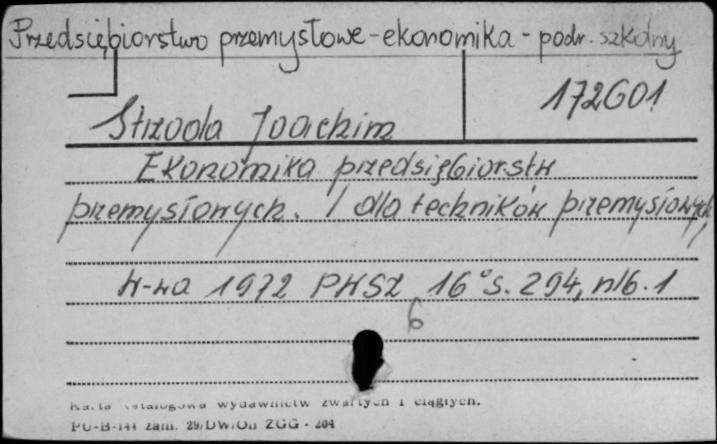 Przedsiębiorstwo przemysłowe - ekonomika - podr. szkolny
172601
Strzoda Joachim
Ekonomika przedsiębiorstw
przemysłowych. / dla techników przemysłowych/
W-wa 1972 PWSZ 16° s. 294, nlb. 1
6
Karta katalogowa wydawnictw zwartych i ciągłych.
PU-B-144 zam. 29/DW/On ZGG - 204